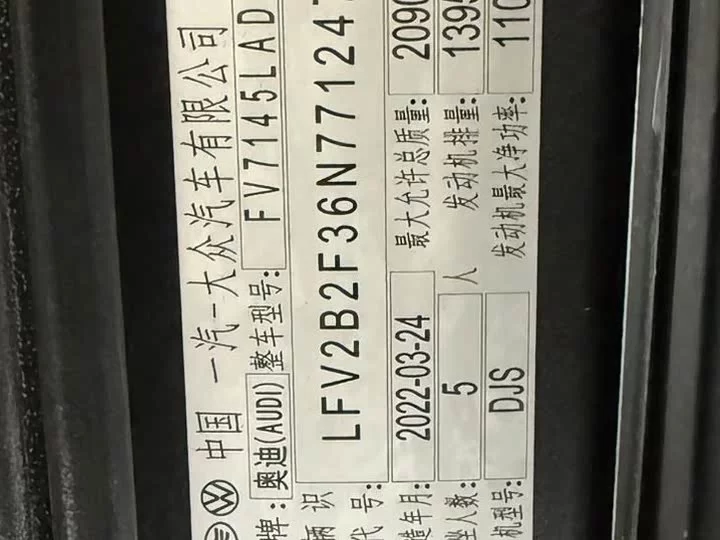 中国 一汽-大众汽车有限公司
牌: 奥迪(AUDI) 整车型号: FV7145LAD
辆识 LFV2B2F36N771247
代号:
造年月: 2022-03-24 最大允许总质量: 2090
坐人数: 5 人 发动机排量: 1395
机型号: DJS 发动机最大净功率: 110